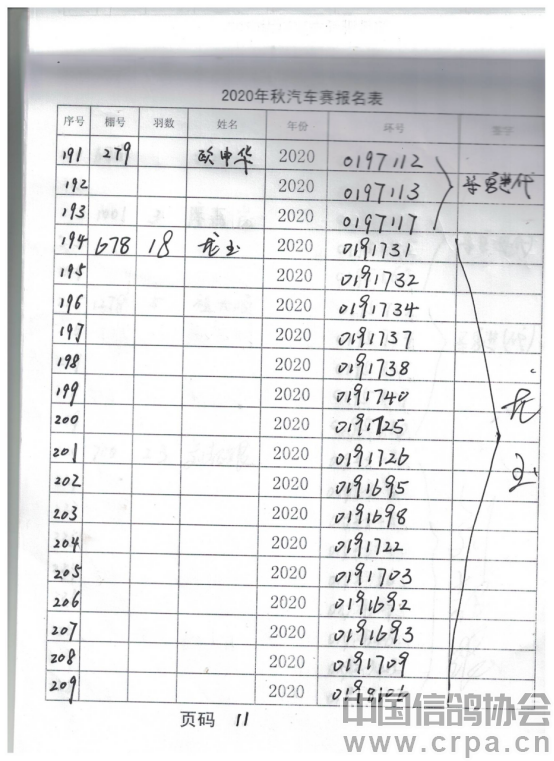 2020年秋汽车赛报名表
序号 棚号 羽数 姓名 年份 环号 签字
191 279 欧申华 2020 0197112
192 2020 0197113
193 2020 0197117
194 678 18 2020 0191731
195 2020 0191732
196 2020 0191734
197 2020 0191737
198 2020 0191738
199 2020 0191740
200 2020 0191725
201 2020 0191726
202 2020 0191695
203 2020 0191698
204 2020 0191722
205 2020 0191703
206 2020 0191692
207 2020 0191693
208 2020 0191709
209 2020
页码 11
中国信鸽协会
www.crpa.cn